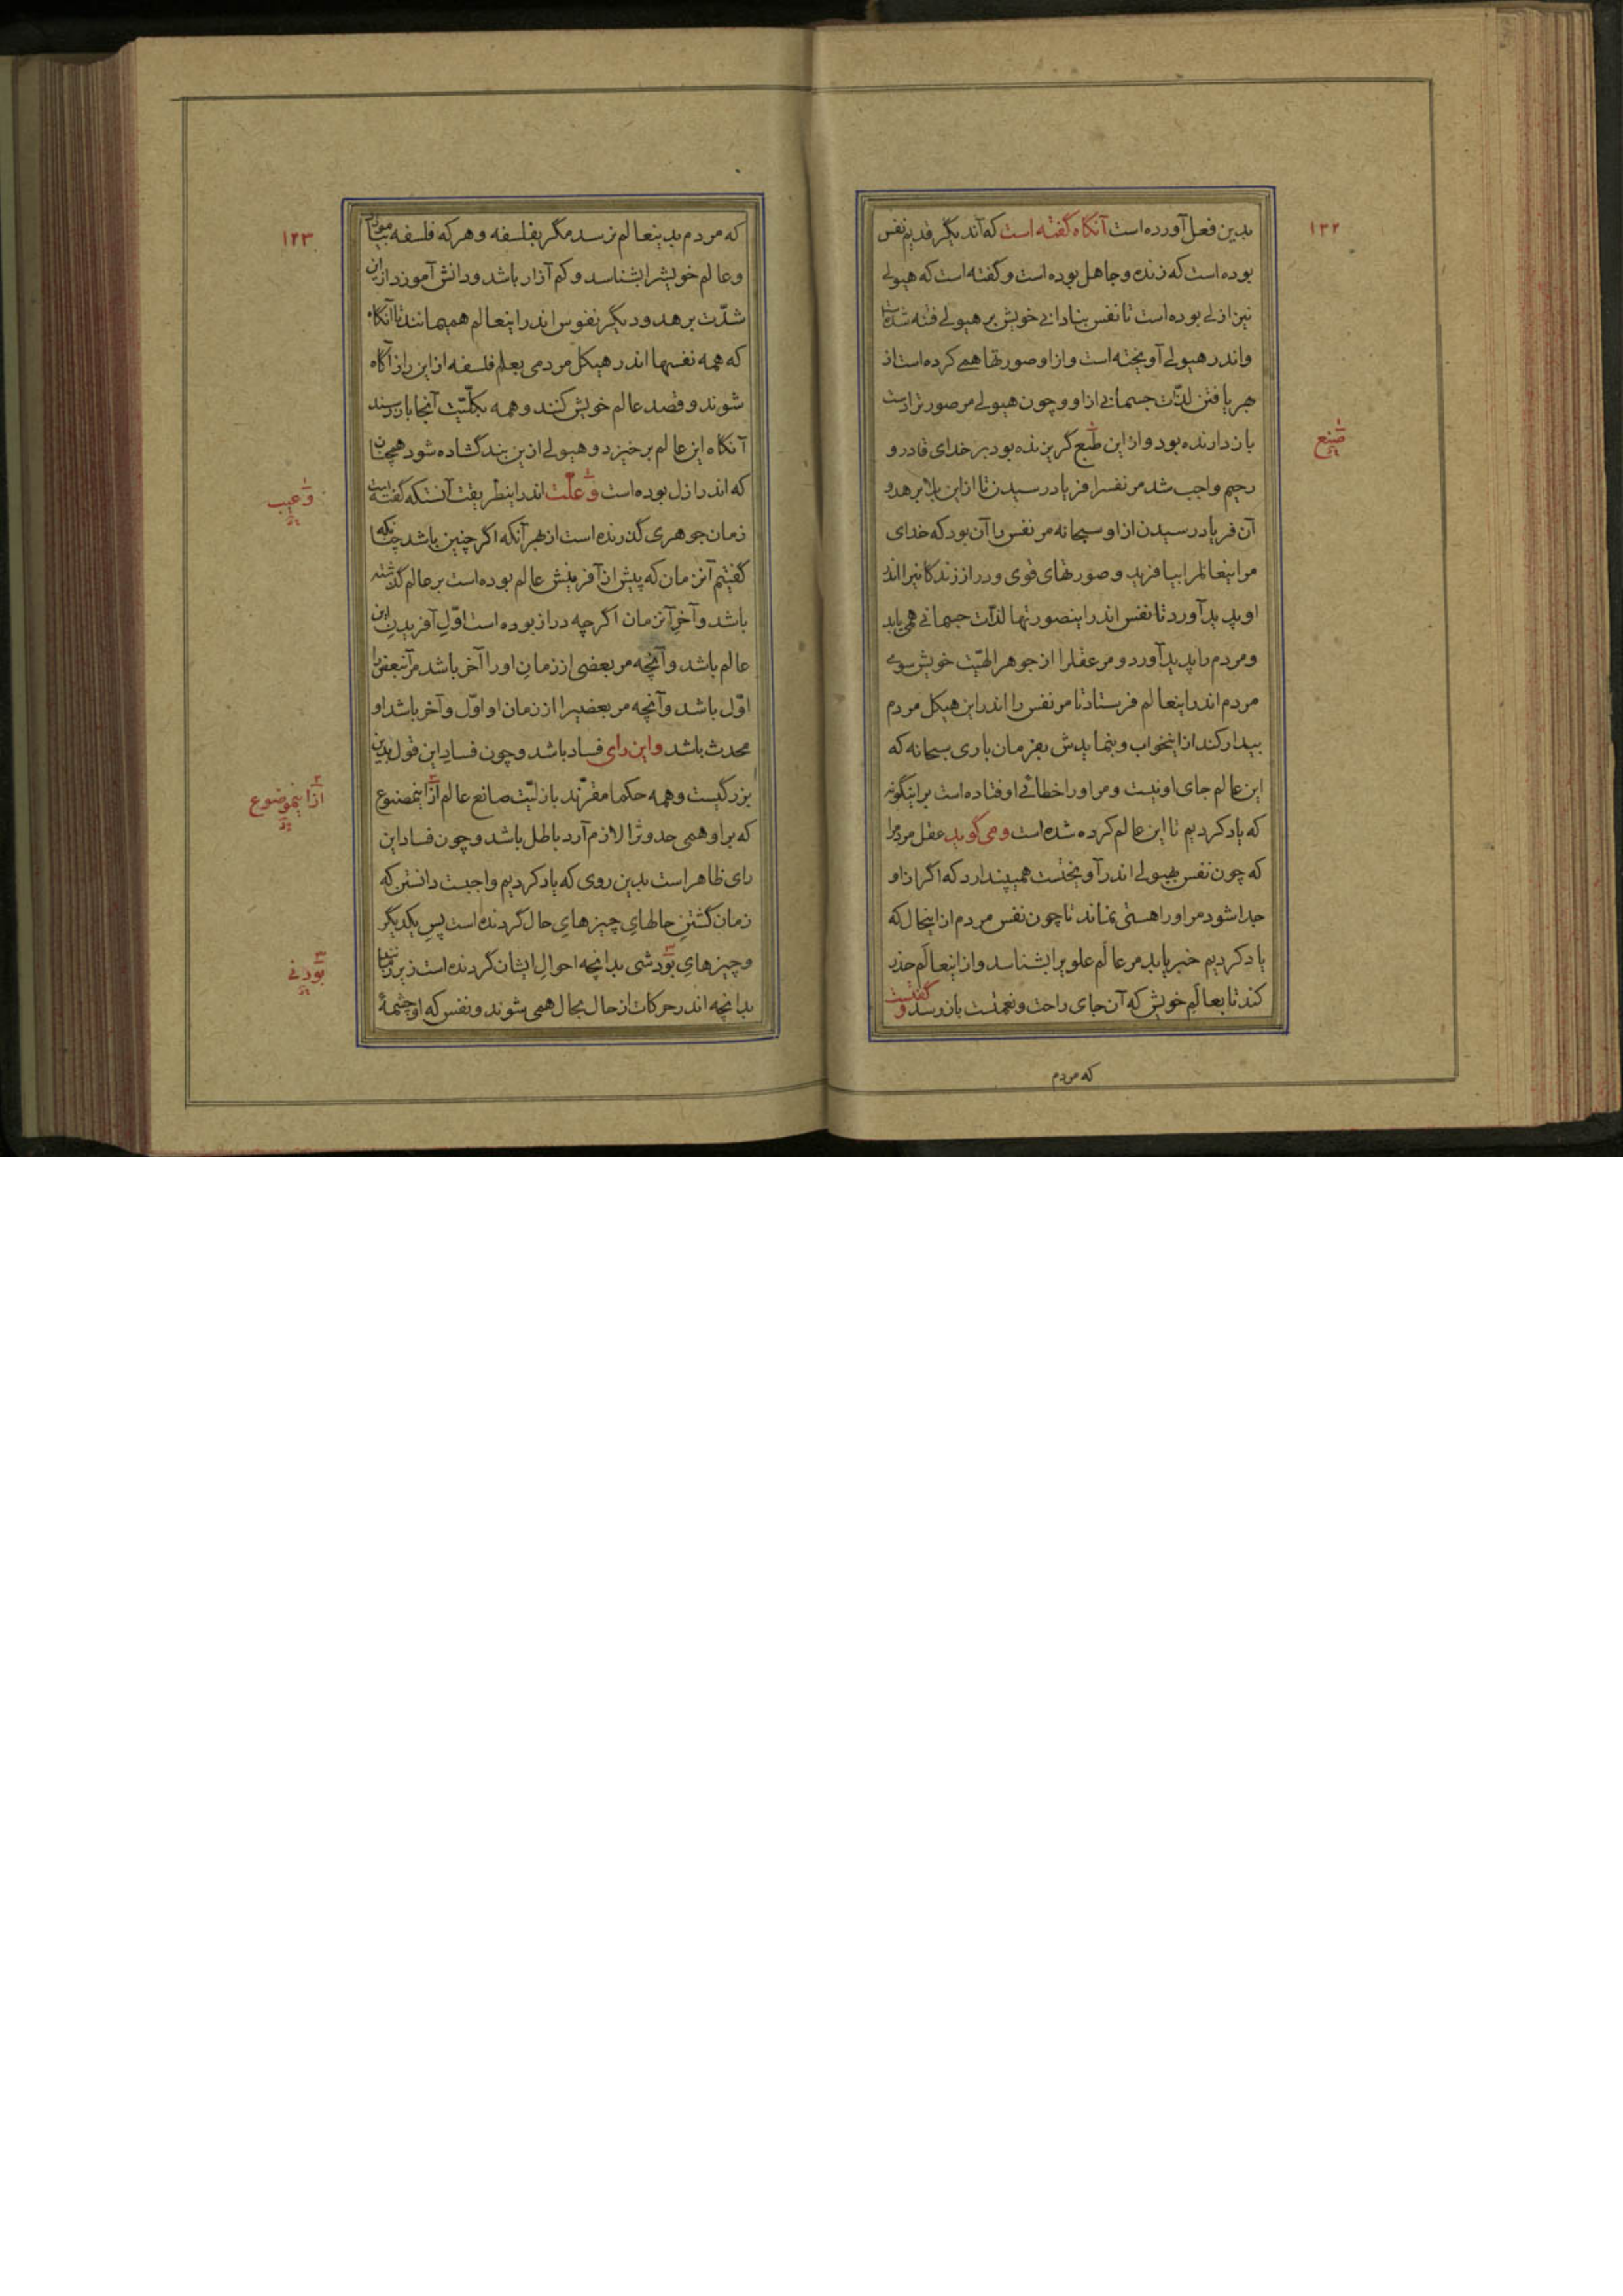 ۱۲۲
بدین فعل آورده است آنگاه گفته است که آندیگر قدیم نفس
بوده است که زنده و جاهل بوده است و گفته است که هیولے
نیز ازلے بوده است تا نفس بنادانے خویش بر هیولے فتنه شده است
و اندر هیولے آویخته است و از او صورتها همے کرده است از
بهر یافتن لذّات جسمانے از او و چون هیولے مر صورترا دست
باز دارنده بود و از این طبع گریزنده بود بر خدای قادر و
صنع
رحیم واجب شد مر نفسرا فریاد رسیدن تا از این بلا برهد و
آن فریاد رسیدن از او سبحانه مر نفس را آن بود که خدای
مر اینعالمرا بیافرید و صورتهای قوی و دراز زندگانیرا اندر
او پدید آورد تا نفس اندر اینصورتها لذّات جسمانے همی یابد
و مردم را پدید آورد و مر عقلرا از جوهر الهیّت خویش سوے
مردم اندر اینعالم فرستاد تا مر نفس را اندر این هیکل مردم
بیدار کند از اینخواب و بنمایدش بفرمان باری سبحانه که
این عالم جای او نیست و مر او را خطائے اوفتاده است بر اینگونه
که یاد کردیم تا این عالم کرده شده است و می گوید عقل مردمرا
که چون نفس بهیولے اندر آویختست همیپندارد که اگر از او
جدا شود مر او را هستی نماند تا چون نفس مردم از اینحال که
یاد کردیم خبر یابد مر عالَم علویرا بشناسد و از اینعالَم حذر
کند تا بعالَمِ خویش که آن جای راحت و نعمتست باز رسد و گفتست
که مردم
۱۲۳
که مردم بدینعالم نرسد مگر بفلسفه و هر که فلسفه بیاموزد
و عالم خویشرا بشناسد و کم آزار باشد و دانش آموزد از این
شدّت برهد و دیگر نفوس اندر اینعالم همیمانند تا آنگاه
که همه نفسها اندر هیکل مردمی بعلم فلسفه از این راز آگاه
شوند و قصد عالم خویش کنند و همه بکلّیّت آنجا باز رسند
آنگاه این عالم برخیزد و هیولے ازین بند گشاده شود همچنان
که اندر ازل بوده است و علّت اندر اینطریقت آنستکه گفته است
و عیب
زمان جوهری گذرنده است از بهر آنکه اگر چنین باشد چنانکه
گفتیم آنزمان که پیش از آفرینش عالم بوده است بر عالم گذشته
باشد و آخرِ آنزمان اگرچه دراز بوده است اوّلِ آفریدنِ این
عالم باشد و آنچه مر بعضی از زمانِ او را آخر باشد مر آنبعض را
اوّل باشد و آنچه مر بعضیرا از زمان او اوّل و آخر باشد او
محدث باشد و این رای فساد باشد و چون فساد این قول بدین
بزرگیست و همه حکما مقرّند بازلیّت صانع عالم از اینمصنوع
از اینموضوع
که بر او همی حدوثرا لازم آرد باطل باشد و چون فساد این
رای ظاهر است بدین روی که یاد کردیم واجبست دانستن که
زمان گشتنِ حالهایِ چیزهایِ حال گردنده است پسِ یکدیگر
و چیزهایِ بودشی بدانچه احوالِ ایشان گردنده است
بودنے
بدانچه اندر حرکات از حال بحال همی شوند و نفس که او چشمۀ